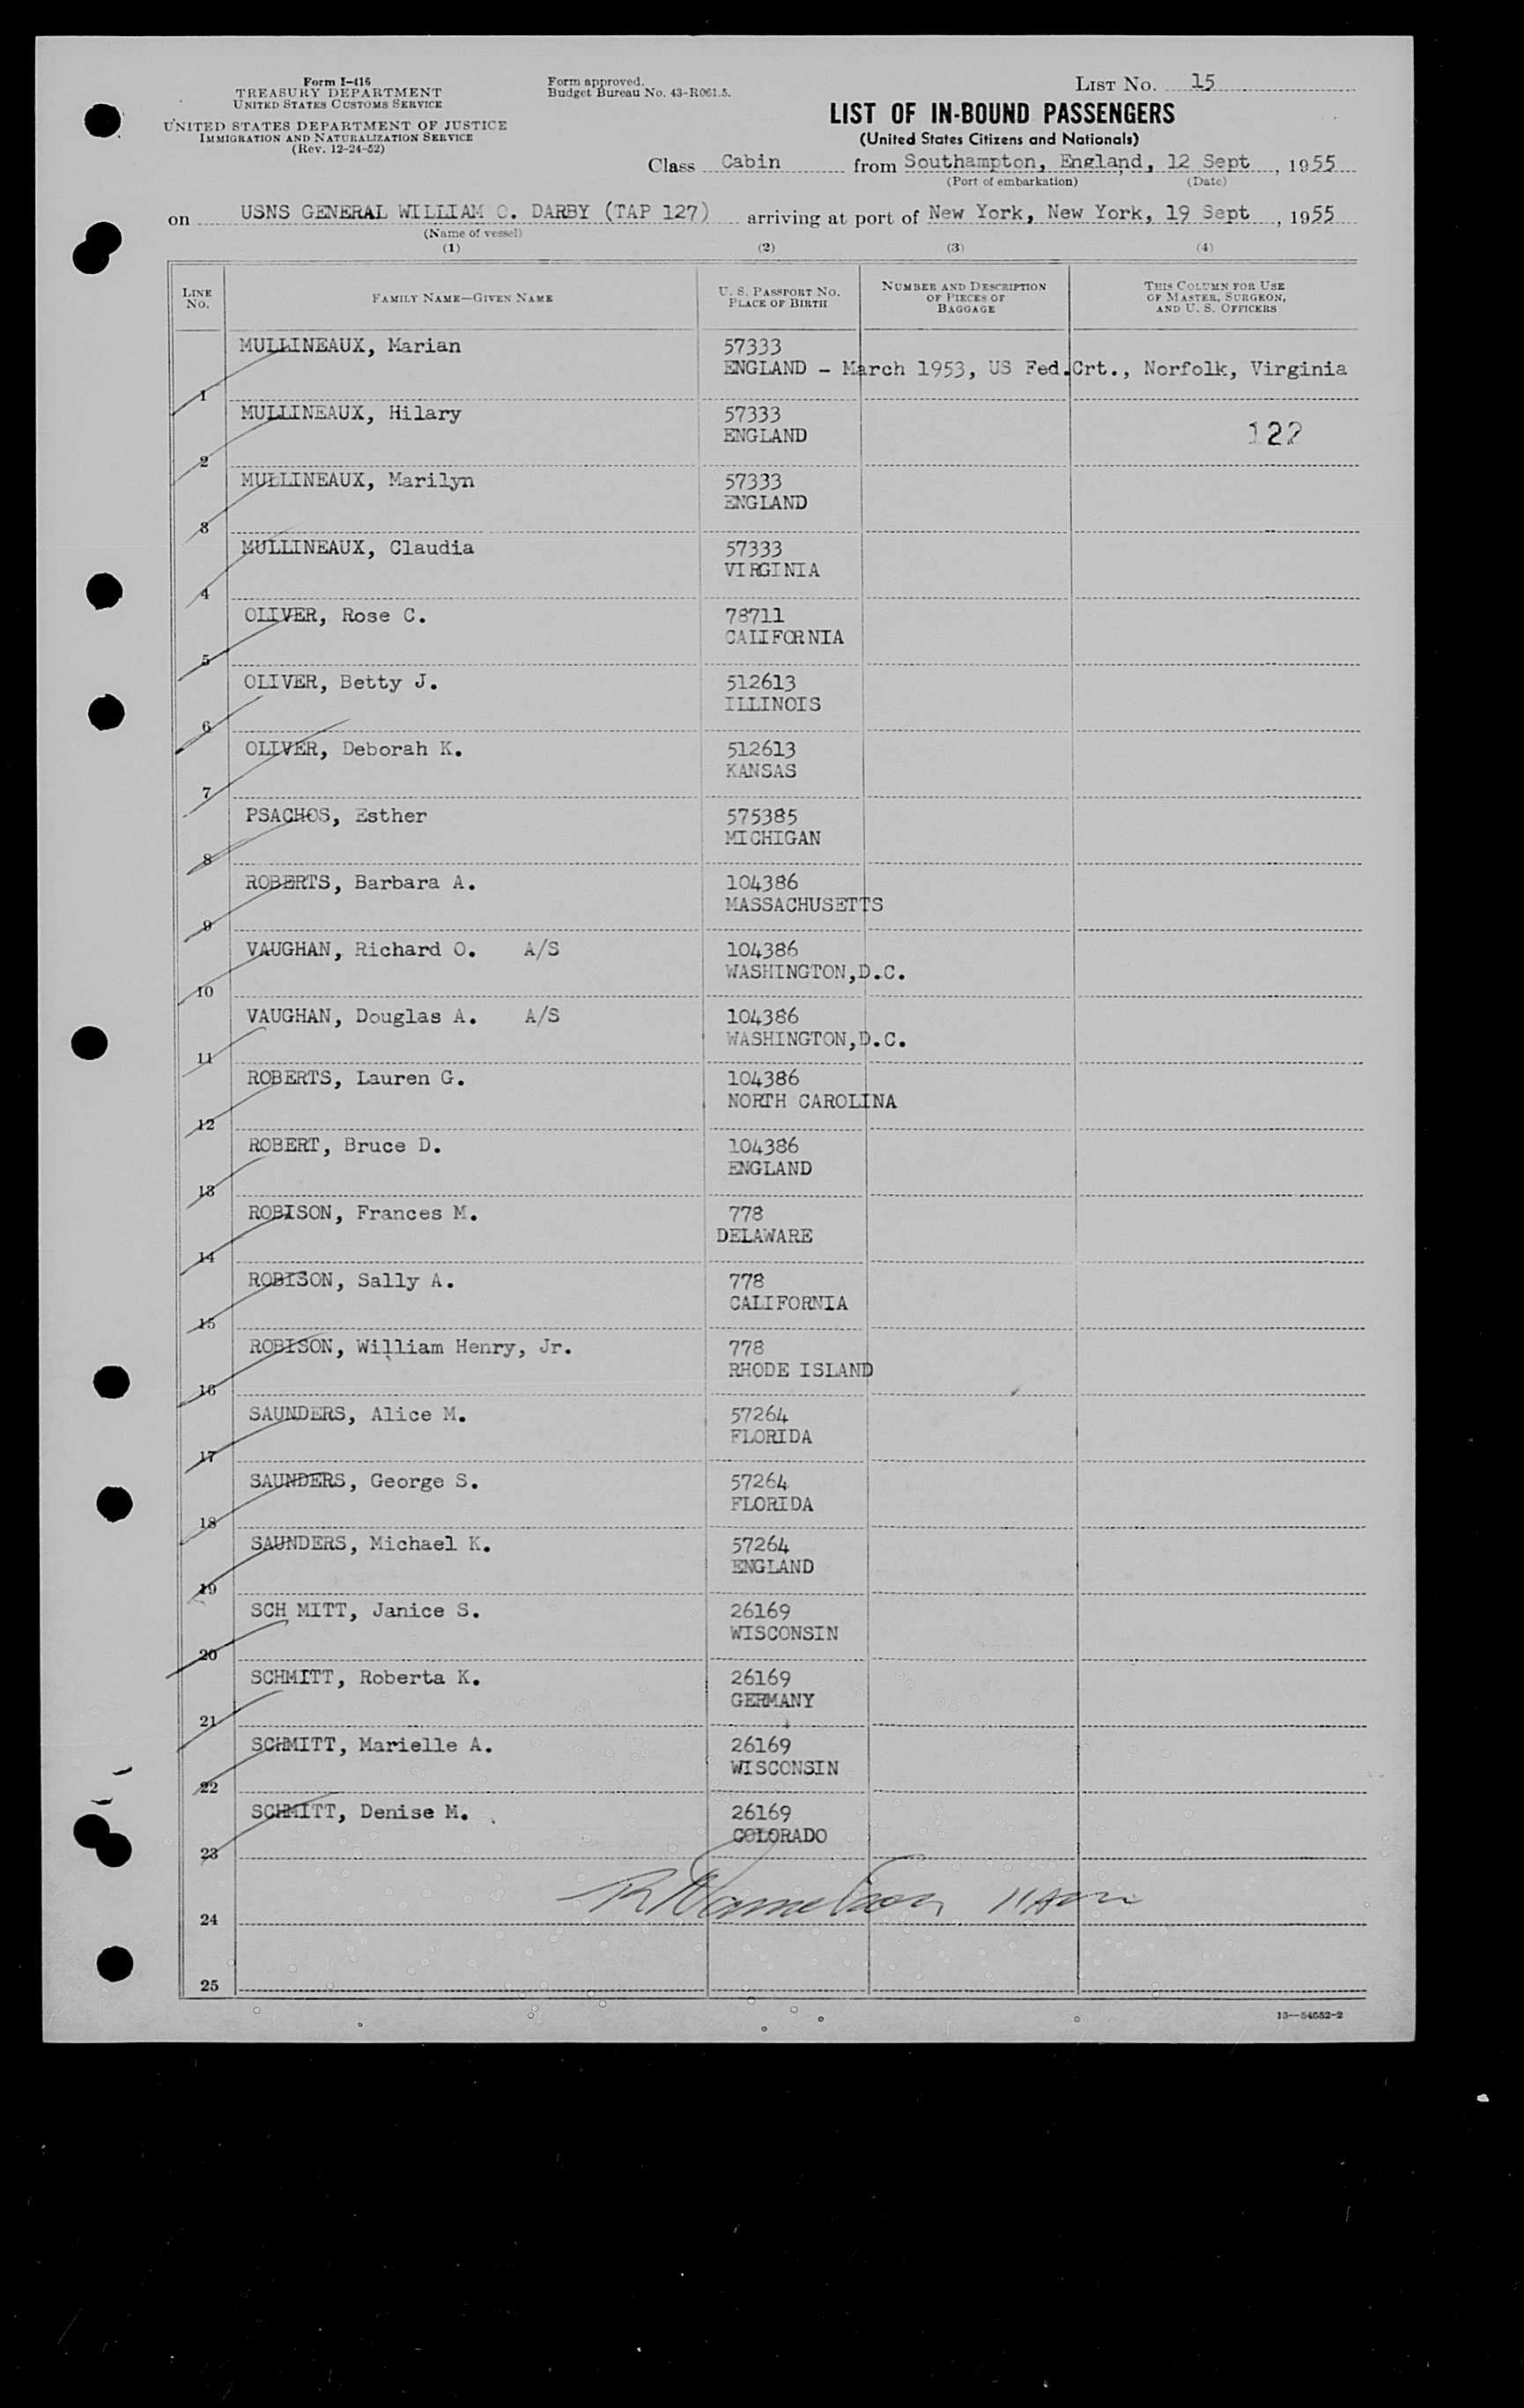 Form I-416
TREASURY DEPARTMENT
UNITED STATES CUSTOMS SERVICE
UNITED STATES DEPARTMENT OF JUSTICE
IMMIGRATION AND NATURALIZATION SERVICE
(Rev. 12-24-52)
Form approved.
Budget Bureau No. 43-R061.5.
LIST NO. 15
LIST OF IN-BOUND PASSENGERS
(United States Citizens and Nationals)
Class Cabin from Southampton, England, 12 Sept, 1955
(Port of embarkation) (Date)
on USNS GENERAL WILLIAM O. DARBY (TAP 127) arriving at port of New York, New York, 19 Sept, 1955
(Name of vessel)
(1) (2) (3) (4)
LINE NO. FAMILY NAME—GIVEN NAME U. S. PASSPORT NO. PLACE OF BIRTH NUMBER AND DESCRIPTION OF PIECES OF BAGGAGE THIS COLUMN FOR USE OF MASTER, SURGEON, AND U. S. OFFICERS
MULLINEAUX, Marian 57333
1 ENGLAND - March 1953, US Fed.Crt., Norfolk, Virginia
MULLINEAUX, Hilary 57333
2 ENGLAND 122
MULLINEAUX, Marilyn 57333
3 ENGLAND
MULLINEAUX, Claudia 57333
4 VIRGINIA
OLIVER, Rose C. 78711
5 CALIFORNIA
OLIVER, Betty J. 512613
6 ILLINOIS
OLIVER, Deborah K. 512613
7 KANSAS
PSACHOS, Esther 575385
8 MICHIGAN
ROBERTS, Barbara A. 104386
9 MASSACHUSETTS
VAUGHAN, Richard O. A/S 104386
10 WASHINGTON,D.C.
VAUGHAN, Douglas A. A/S 104386
11 WASHINGTON,D.C.
ROBERTS, Lauren G. 104386
12 NORTH CAROLINA
ROBERT, Bruce D. 104386
13 ENGLAND
ROBISON, Frances M. 778
14 DELAWARE
ROBISON, Sally A. 778
15 CALIFORNIA
ROBISON, William Henry, Jr. 778
16 RHODE ISLAND
SAUNDERS, Alice M. 57264
17 FLORIDA
SAUNDERS, George S. 57264
18 FLORIDA
SAUNDERS, Michael K. 57264
19 ENGLAND
SCH MITT, Janice S. 26169
20 WISCONSIN
SCHMITT, Roberta K. 26169
21 GERMANY
SCHMITT, Marielle A. 26169
22 WISCONSIN
SCHMITT, Denise M. 26169
23 COLORADO
24
25
16—54652-2